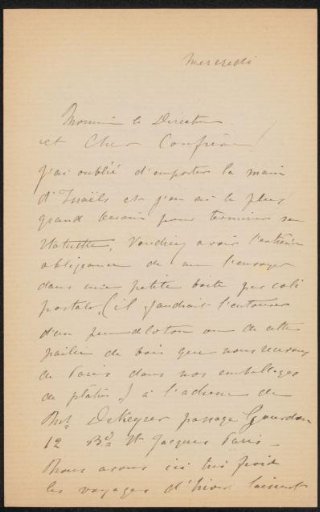 Mercredi
Monsieur le Directeur
et Cher Confrère!
J'ai oublié d'emporter la main
d'Israëls et j'en ai le plus
grand besoin pour terminer sa
statuette. Voudriez avoir l'extrême
obligeance de me l'envoyer
dans une petite boite par coli
postale, (il faudrait l'entourer
d'un peu de coton ou de cette
paille de bois que nous recevons
de Paris dans nos emballages
de plâtre) à l'adresse de
Mr. De Keyser passage Gourdon
12 Bd St Jacques Paris.
Nous avons ici très froid
les voyages d'hiver laissent